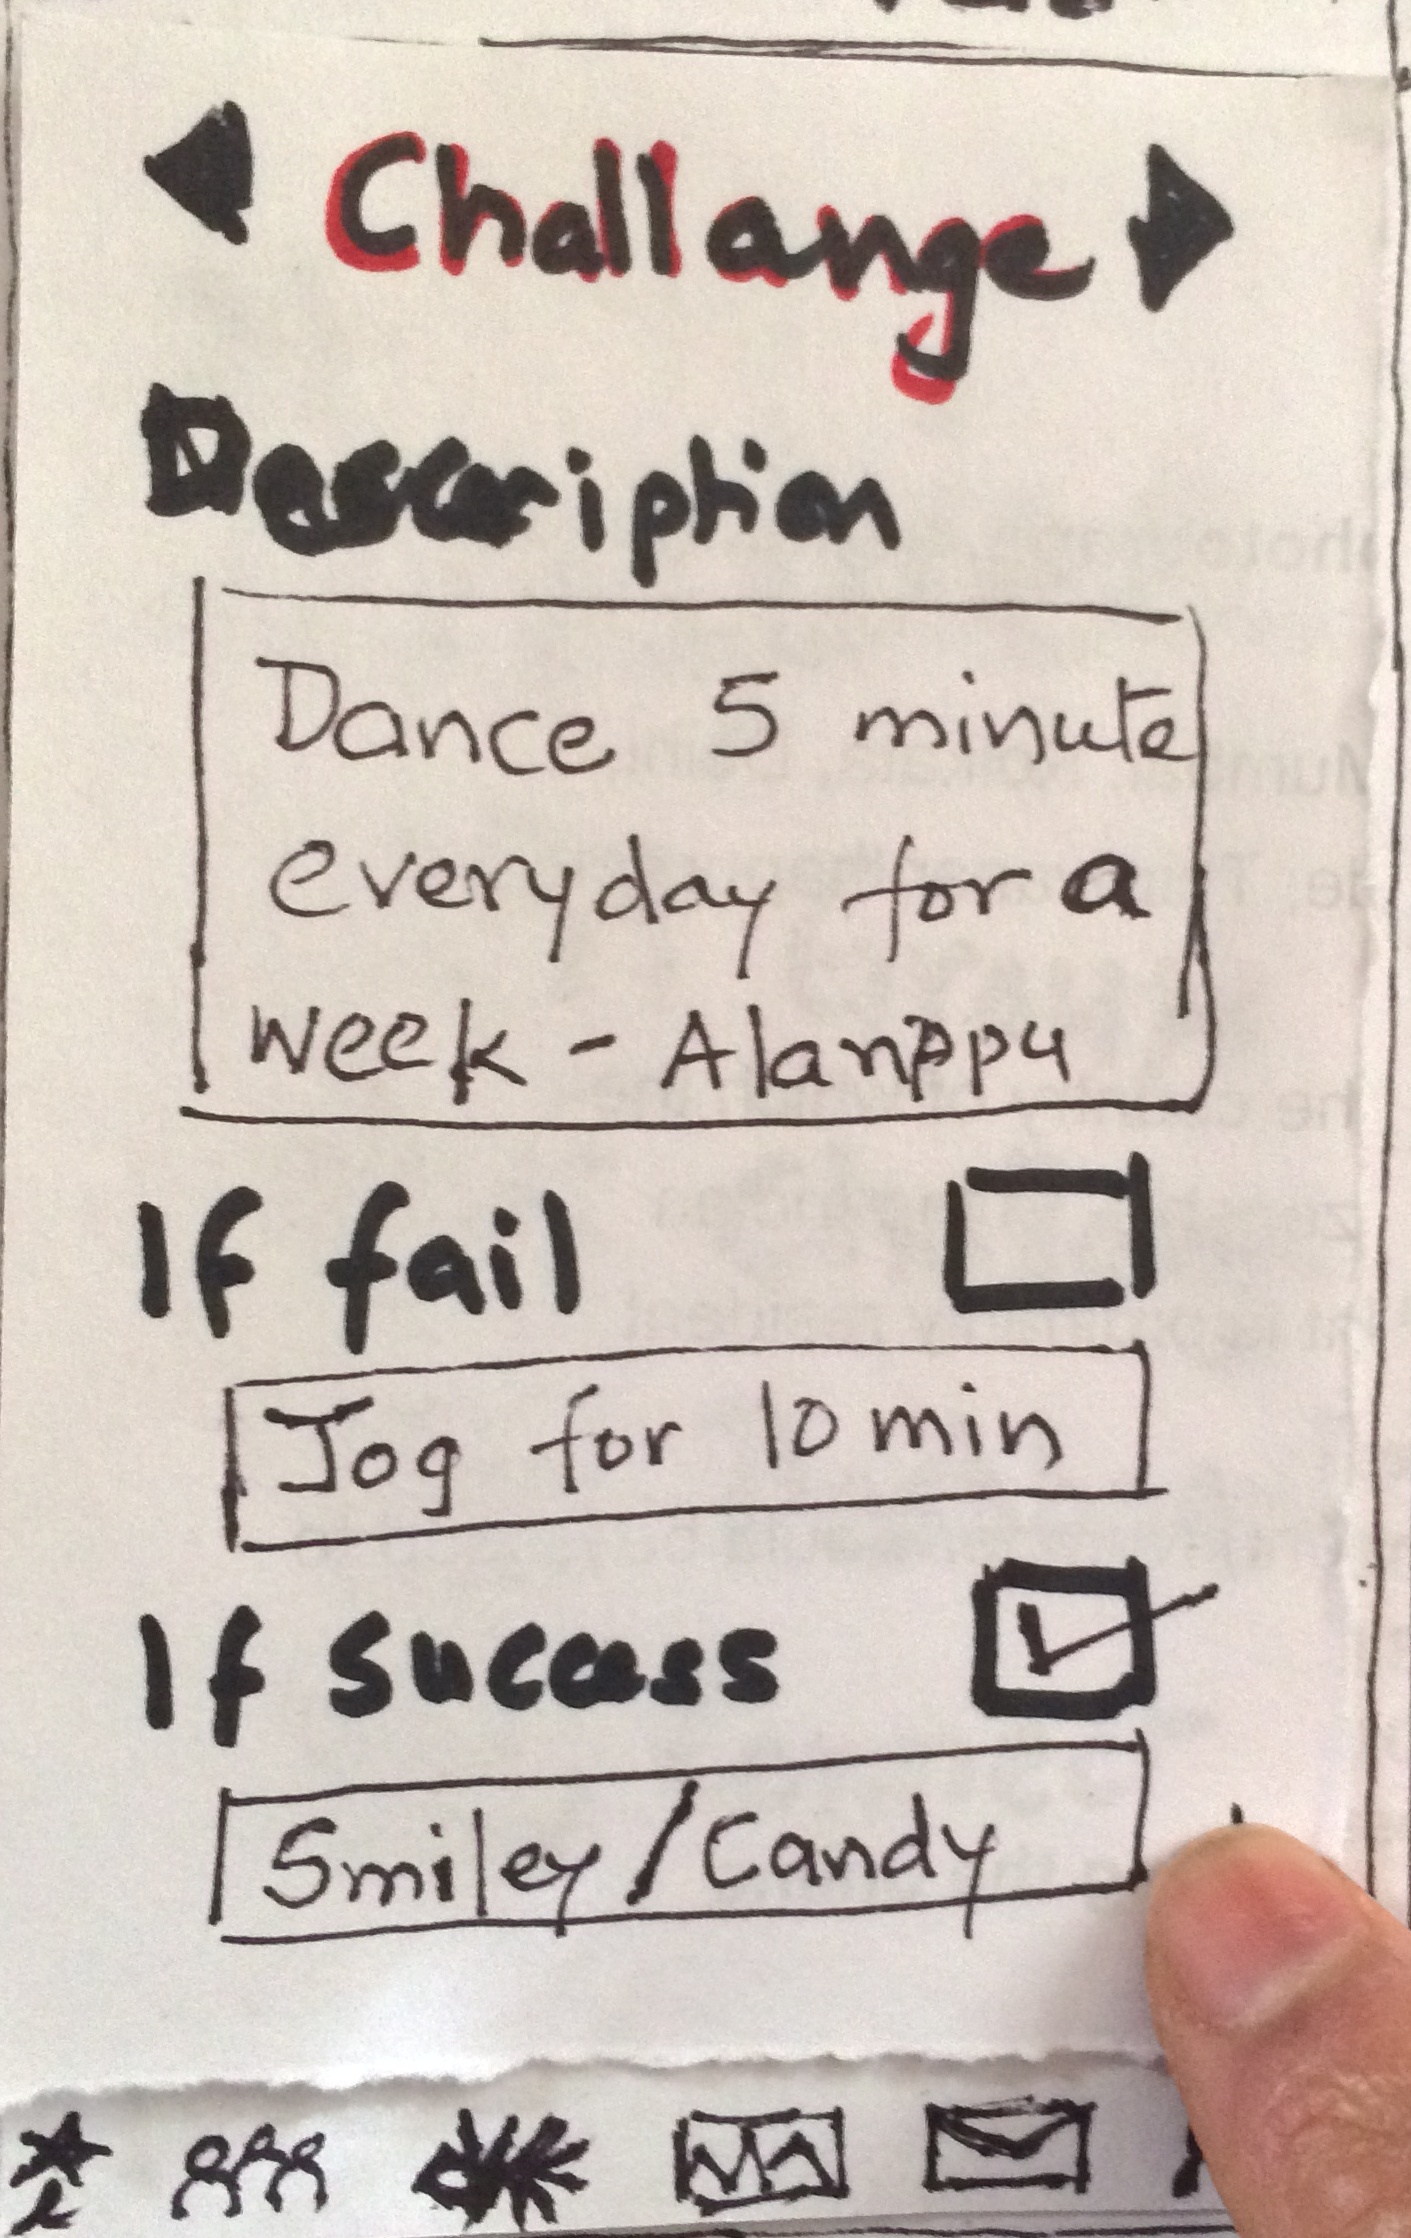 Challange
Description
Dance 5 minute
everyday for a
week - Alanppu
If fail
Jog for 10 min
If success
Smiley/Candy